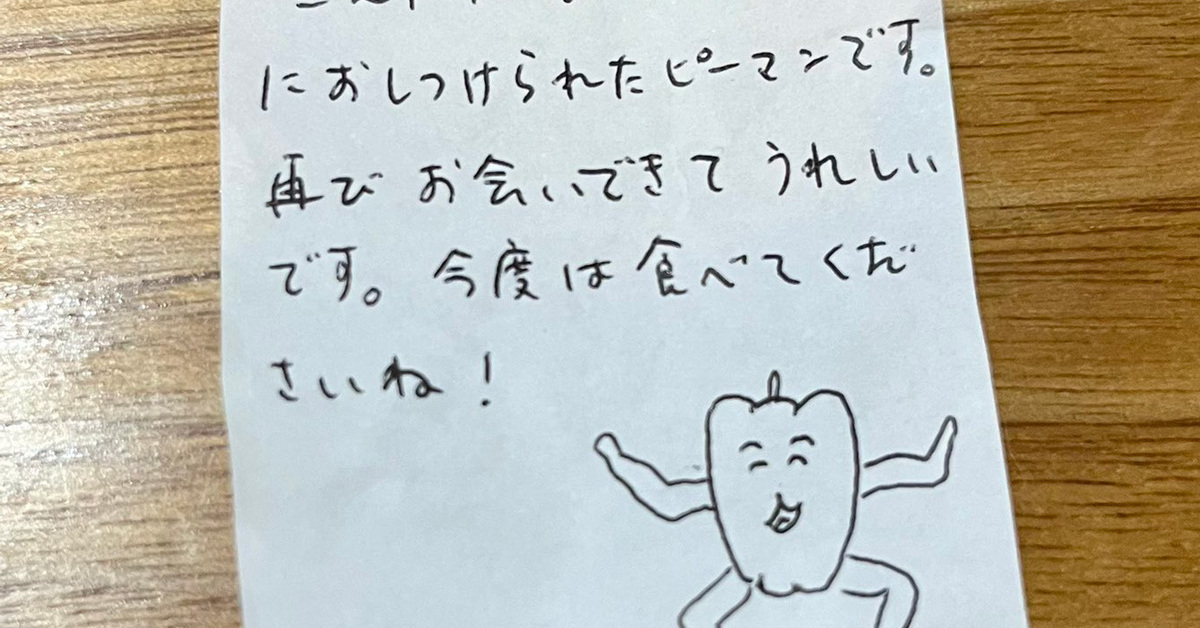 におしつけられたピーマンです。
再びお会いできてうれしい
です。今度は食べてくだ
さいね!